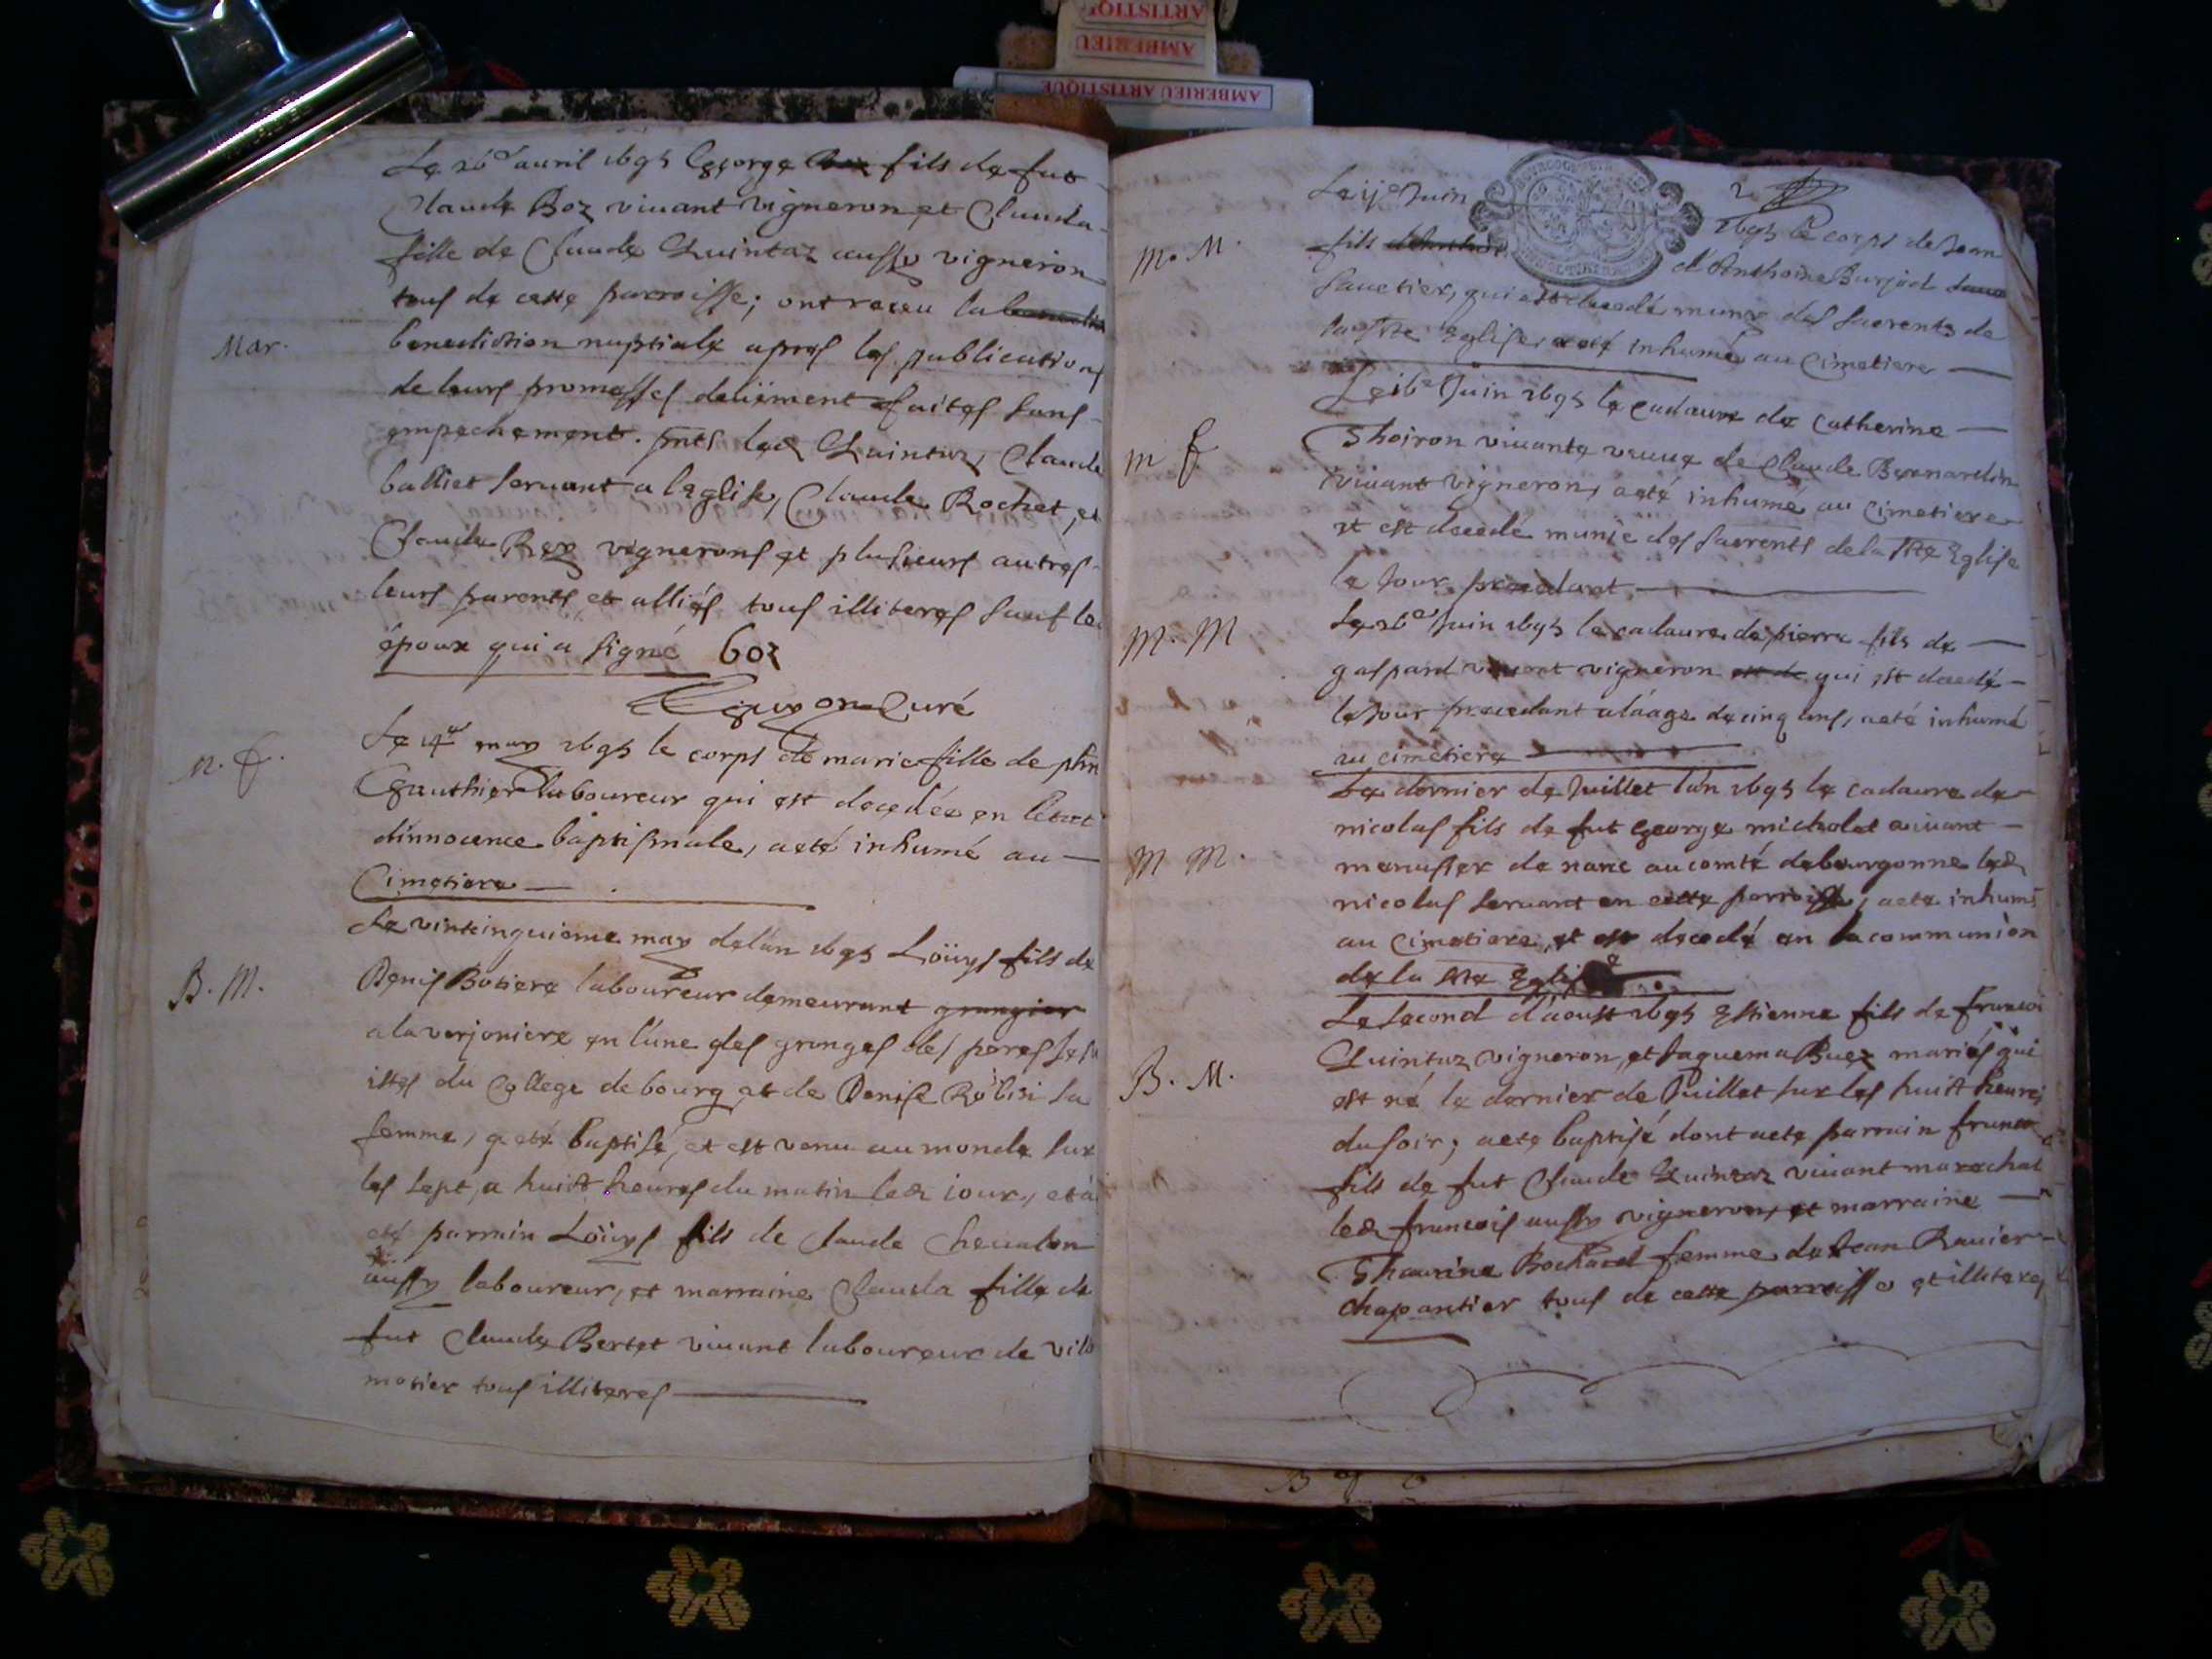 Le 26e auril 1695 George fils de fut
Claude Boz viuant vigneron et Clauda
fille de Claude Quintaz aussy vigneron
tous de cette parroisse; ont receu la
Mar.
benediction nuptiale apres les publications
de leurs promesses deüement faites sans
empechement. pnts led Quintaz, Claude
balliet seruant a leglise, Claude Rochet, et
Claude Rey vignerons et plusieurs autres
leurs parents et alliés tous illiteres sauf le
époux qui a signé boz
Guyon Curé
Le may 1695 le corps de marie fille de
Gauthier laboureur qui est decedée en letat
dinnocence baptismale, aeté inhumé au
Cimetiere
Le vintcinquieme may delan 1695 Loüys fils de
B. M.
Denis Botiere laboureur demeurant grangier
ala verjoniere en lune des granges des peres Jesu
istes du College de bourg et de Denise Robin sa
femme, a eté baptisé, et est venu au monde sur
les sept a huict heures du matin led iour, et a
eté parrain Loüys fils de Claude Cheualon
aussy laboureur, et marraine Clauda fille de
fut Claude Bertet viuant laboureur de vile
motier tous illiteres
AMBERIEU ARTISTIQUE
Le Juin 1695 le corps de Jean
M. M.
fils d'Anthoine Burjod
sauetier, qui est decedé muny des sacrents de
la ste Eglise, a eté inhumé au Cimetiere
Le 16e Juin 1695 le cadaure de Catherine
m f
Thoiron viuante veuue de Claude Bernardin
viuant vigneron, aeté inhumé au Cimetiere
et est decedé munie des sacrents dela ste Eglise
le Jour precedant
M. M
Le 26e Juin 1695 le cadaure de pierre fils de
gaspard vigneron qui est decedé
le Jour precedant aláage de cinq ans, aeté inhumé
au cimetiere
Le dernier de Juillet lan 1695 le cadaure de
nicolas fils de fut George micholet viuant
M M.
menusier de nanc au comté de bourgonne led
nicolas seruant en cette parroisse, aeté inhumé
au Cimetiere, et est decedé en la communion
de la ste Eglise
Le second d'aoust 1695 Estienne fils de francois
Quintaz vigneron, et Jaquema Buez mariés qui
B. M.
est né le dernier de Juillet sur les huict heures
du soir; aeté baptisé dont aeté parrain francois
fils de fut Claude Quintaz viuant marechal
led francois aussy vigneron, et marraine
Thaurine Bochard femme de Jean Rauier
chapantier tous de cette parroisse et illiteres